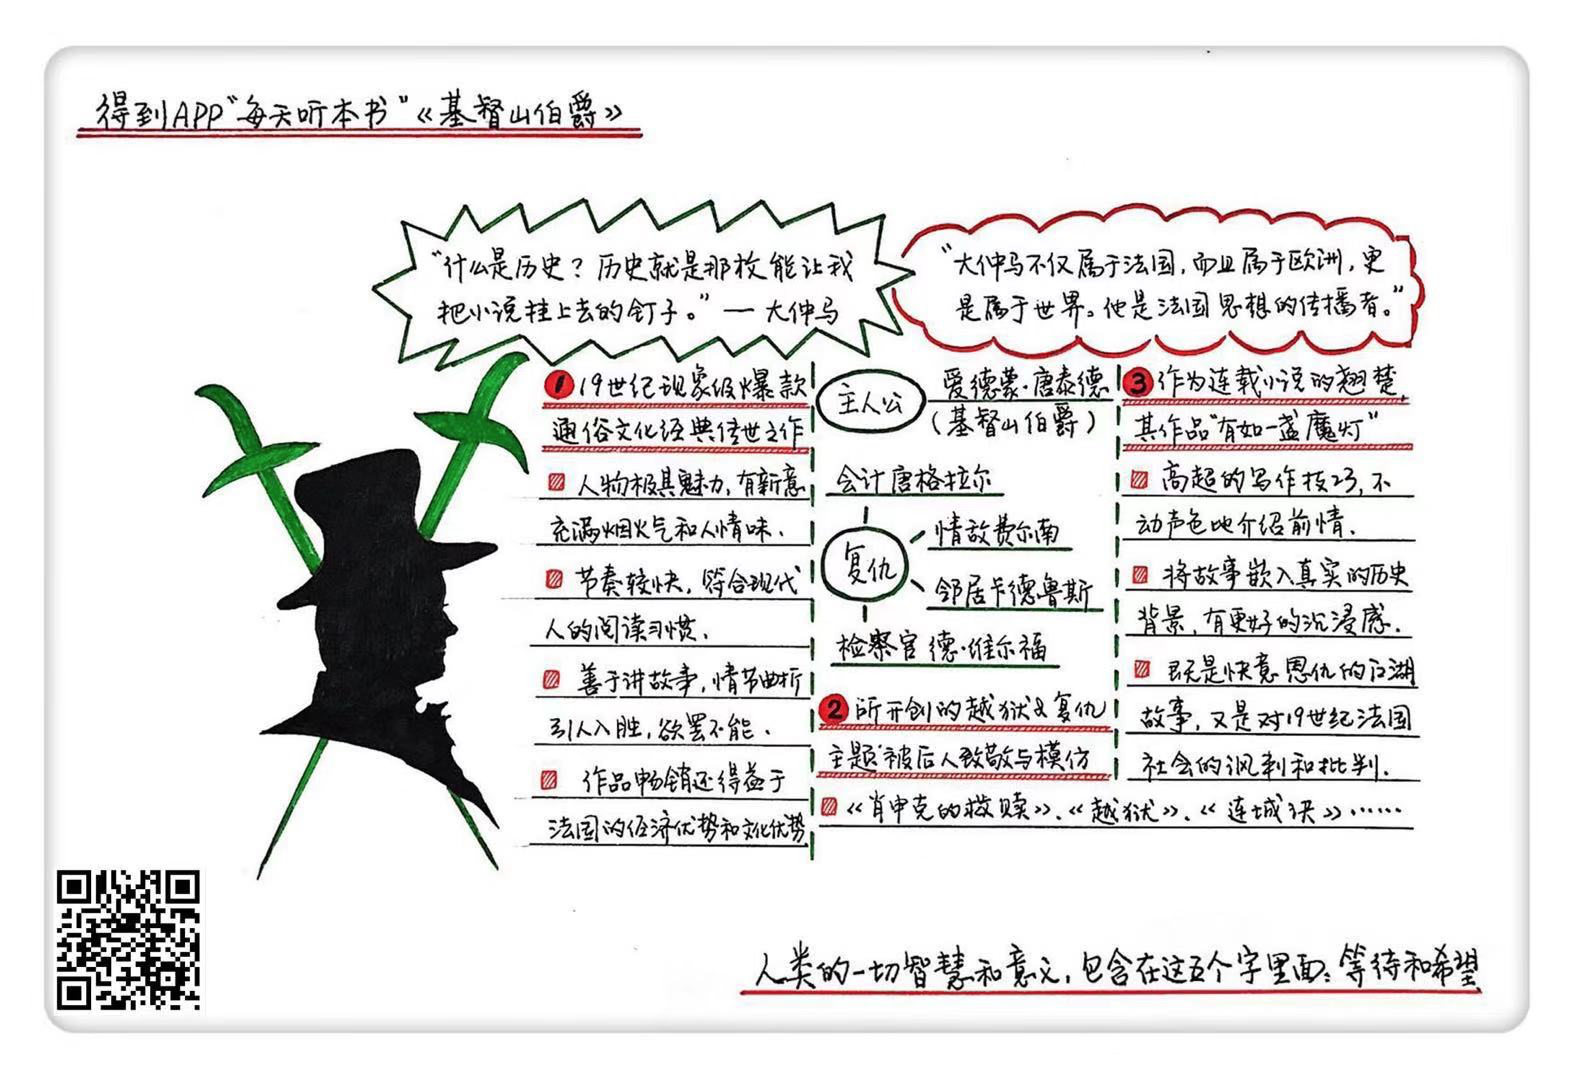 得到APP“每天听本书”《基督山伯爵》
“什么是历史？历史就是那枚能让我
把小说挂上去的钉子。”—大仲马
“大仲马不仅属于法国，而且属于欧洲，更
是属于世界。他是法国思想的传播者。”
1 19世纪现象级爆款
通俗文化经典传世之作
人物极具魅力，有新意
充满烟火气和人情味.
节奏较快，符合现代
人的阅读习惯.
善于讲故事，情节曲折
引人入胜，欲罢不能.
作品畅销还得益于
法国的经济优势和文化优势
主人公
爱德蒙·唐泰德
（基督山伯爵）
会计唐格拉尔
复仇
情敌费尔南
邻居卡德鲁斯
检察官德·维尔福
2 所开创的“越狱&复仇
主题”被后人致敬与模仿
《肖申克的救赎》、《越狱》、《连城诀》……
3 作为连载小说的翘楚，
其作品“有如一盏魔灯”
高超的写作技巧，不
动声色地介绍前情.
将故事嵌入真实的历史
背景，有更好的沉浸感.
既是快意恩仇的江湖
故事，又是对19世纪法国
社会的讽刺和批判.
人类的一切智慧和意义，包含在这五个字里面：等待和希望